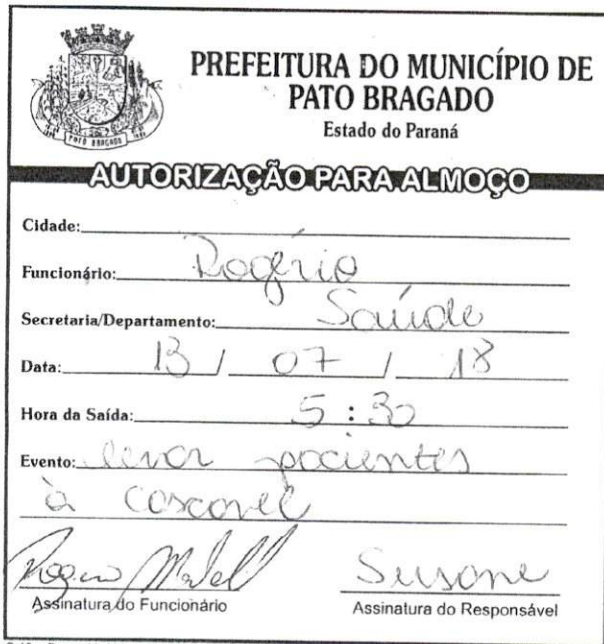 PREFEITURA DO MUNICÍPIO DE
PATO BRAGADO
Estado do Paraná
PATO BRAGADO
AUTORIZAÇÃO PARA ALMOÇO
Cidade:
Funcionário: Rogério
Secretaria/Departamento: Saúde
Data: 13 / 07 / 18
Hora da Saída: 5:30
Evento: levar pacientes
à Cascavel
Assinatura do Funcionário
Susane
Assinatura do Responsável